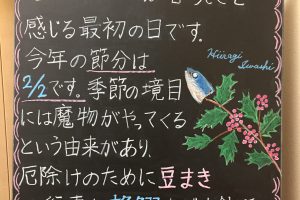 感じる最初の日です.
今年の節分は
2/2です。季節の境目
には魔物がやってくる
という由来があり、
厄除けのために豆まき
Hiiragi
Iwashi